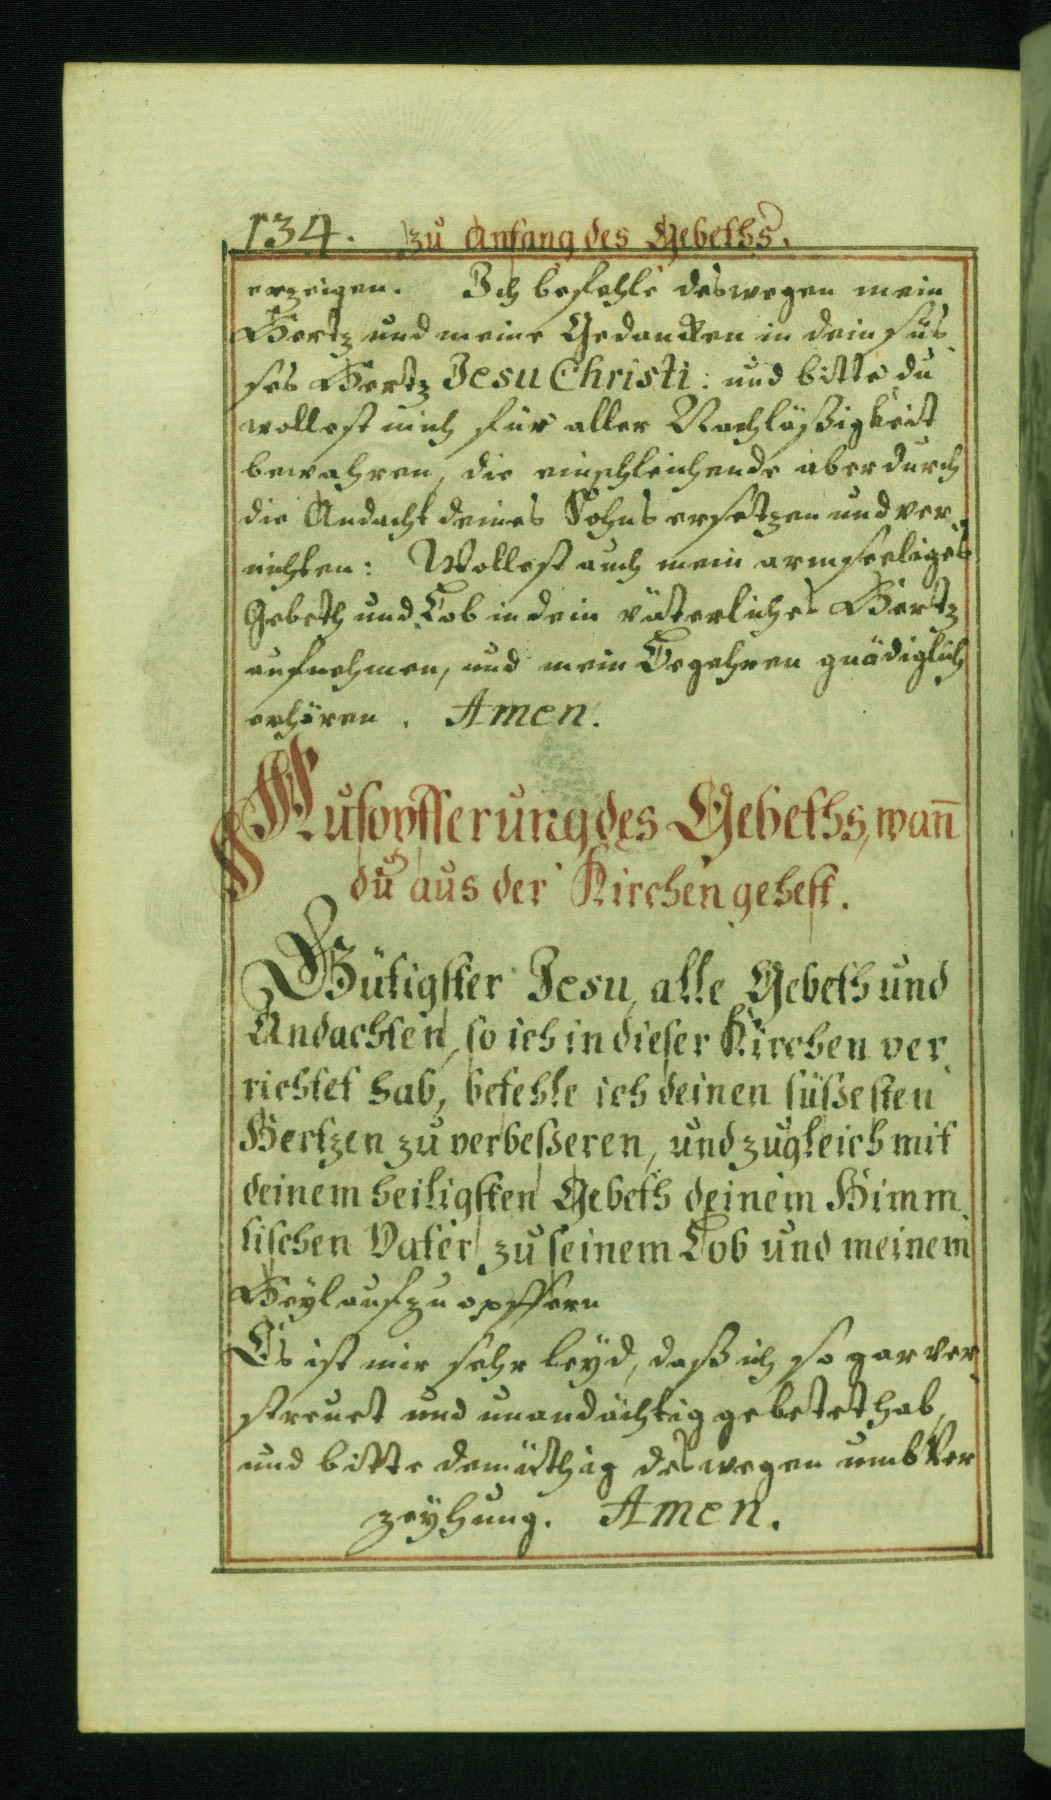 134. zu Anfang des Gebeths.
erzeigen. Ich befehle deswegen mein
Hertz und meine Gedancken in dein süs
ses Hertz Jesu Christi: und bitte, du
wollest mich für aller Nachläßigkeit
bewahren, die einschleichende aber durch
die Andacht deines Sohns ersetzen und ver
nichten: Wollest auch mein armseeliges
Gebeth und Lob in dein väterliches Hertz
aufnehmen, und mein Begehren gnädiglich
erhören. Amen.
Aufopfferung des Gebeths, wan̄
du aus der Kirchen gehest.
Gütigster Jesu, alle Gebeth und
Andachten, so ich in dieser Kirchen ver
richtet hab, befehle ich deinen süßesten
Hertzen zu verbeßeren, und zugleich mit
deinem heiligsten Gebeth deinem Himm
lischen Vater zu seinem Lob und meinem
Heyl aufzuopffern
Es ist mir sehr leyd, daß ich so gar ver
streuet und unandächtig gebetet hab,
und bitte demüthig deswegen umb Ver
zeyhung. Amen.